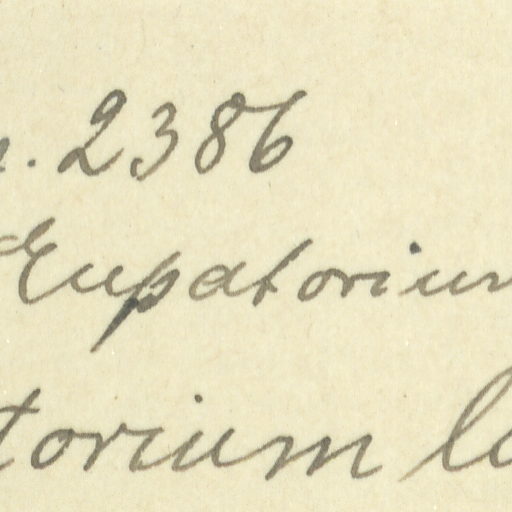 . 2386
Eupatorium
torium l